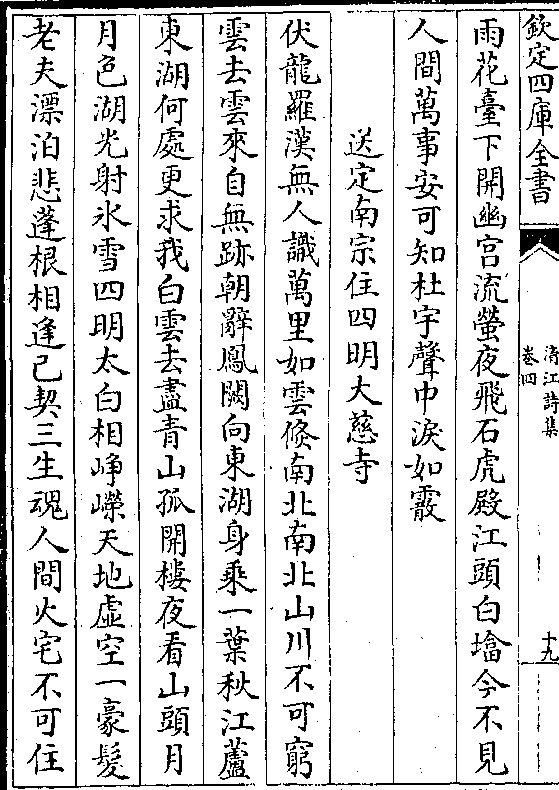 欽定四庫全書
清江詩集
卷四
十九
雨花臺下開幽宫流螢夜飛石虎殿江頭白塔今不見
人間萬事安可知杜宇聲中淚如霰
送定南宗住四明大慈寺
伏龍羅漢無人識萬里如雲倐南北南北山川不可窮
雲去雲來自無跡朝辭鳳闕向東湖身乗一葉秋江蘆
東湖何處更求我白雲去盡青山孤開樓夜看山頭月
月色湖光射氷雪四明太白相崢嶸天地虛空一豪髮
老夫漂泊悲蓬根相逢已契三生魂人間火宅不可住